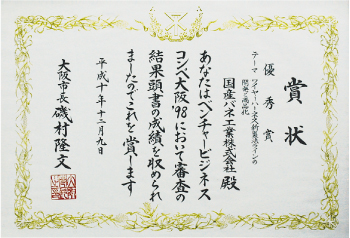 賞状
優秀賞
テーマ ワイヤーハーネス新製造ラインの
開発と商品化
国産バネ工業株式会社 殿
あなたはベンチャービジネス
コンペ大阪'98において審査の
結果頭書の成績を収められ
ましたのでこれを賞します
平成十年十二月九日
大阪市長 磯村隆文